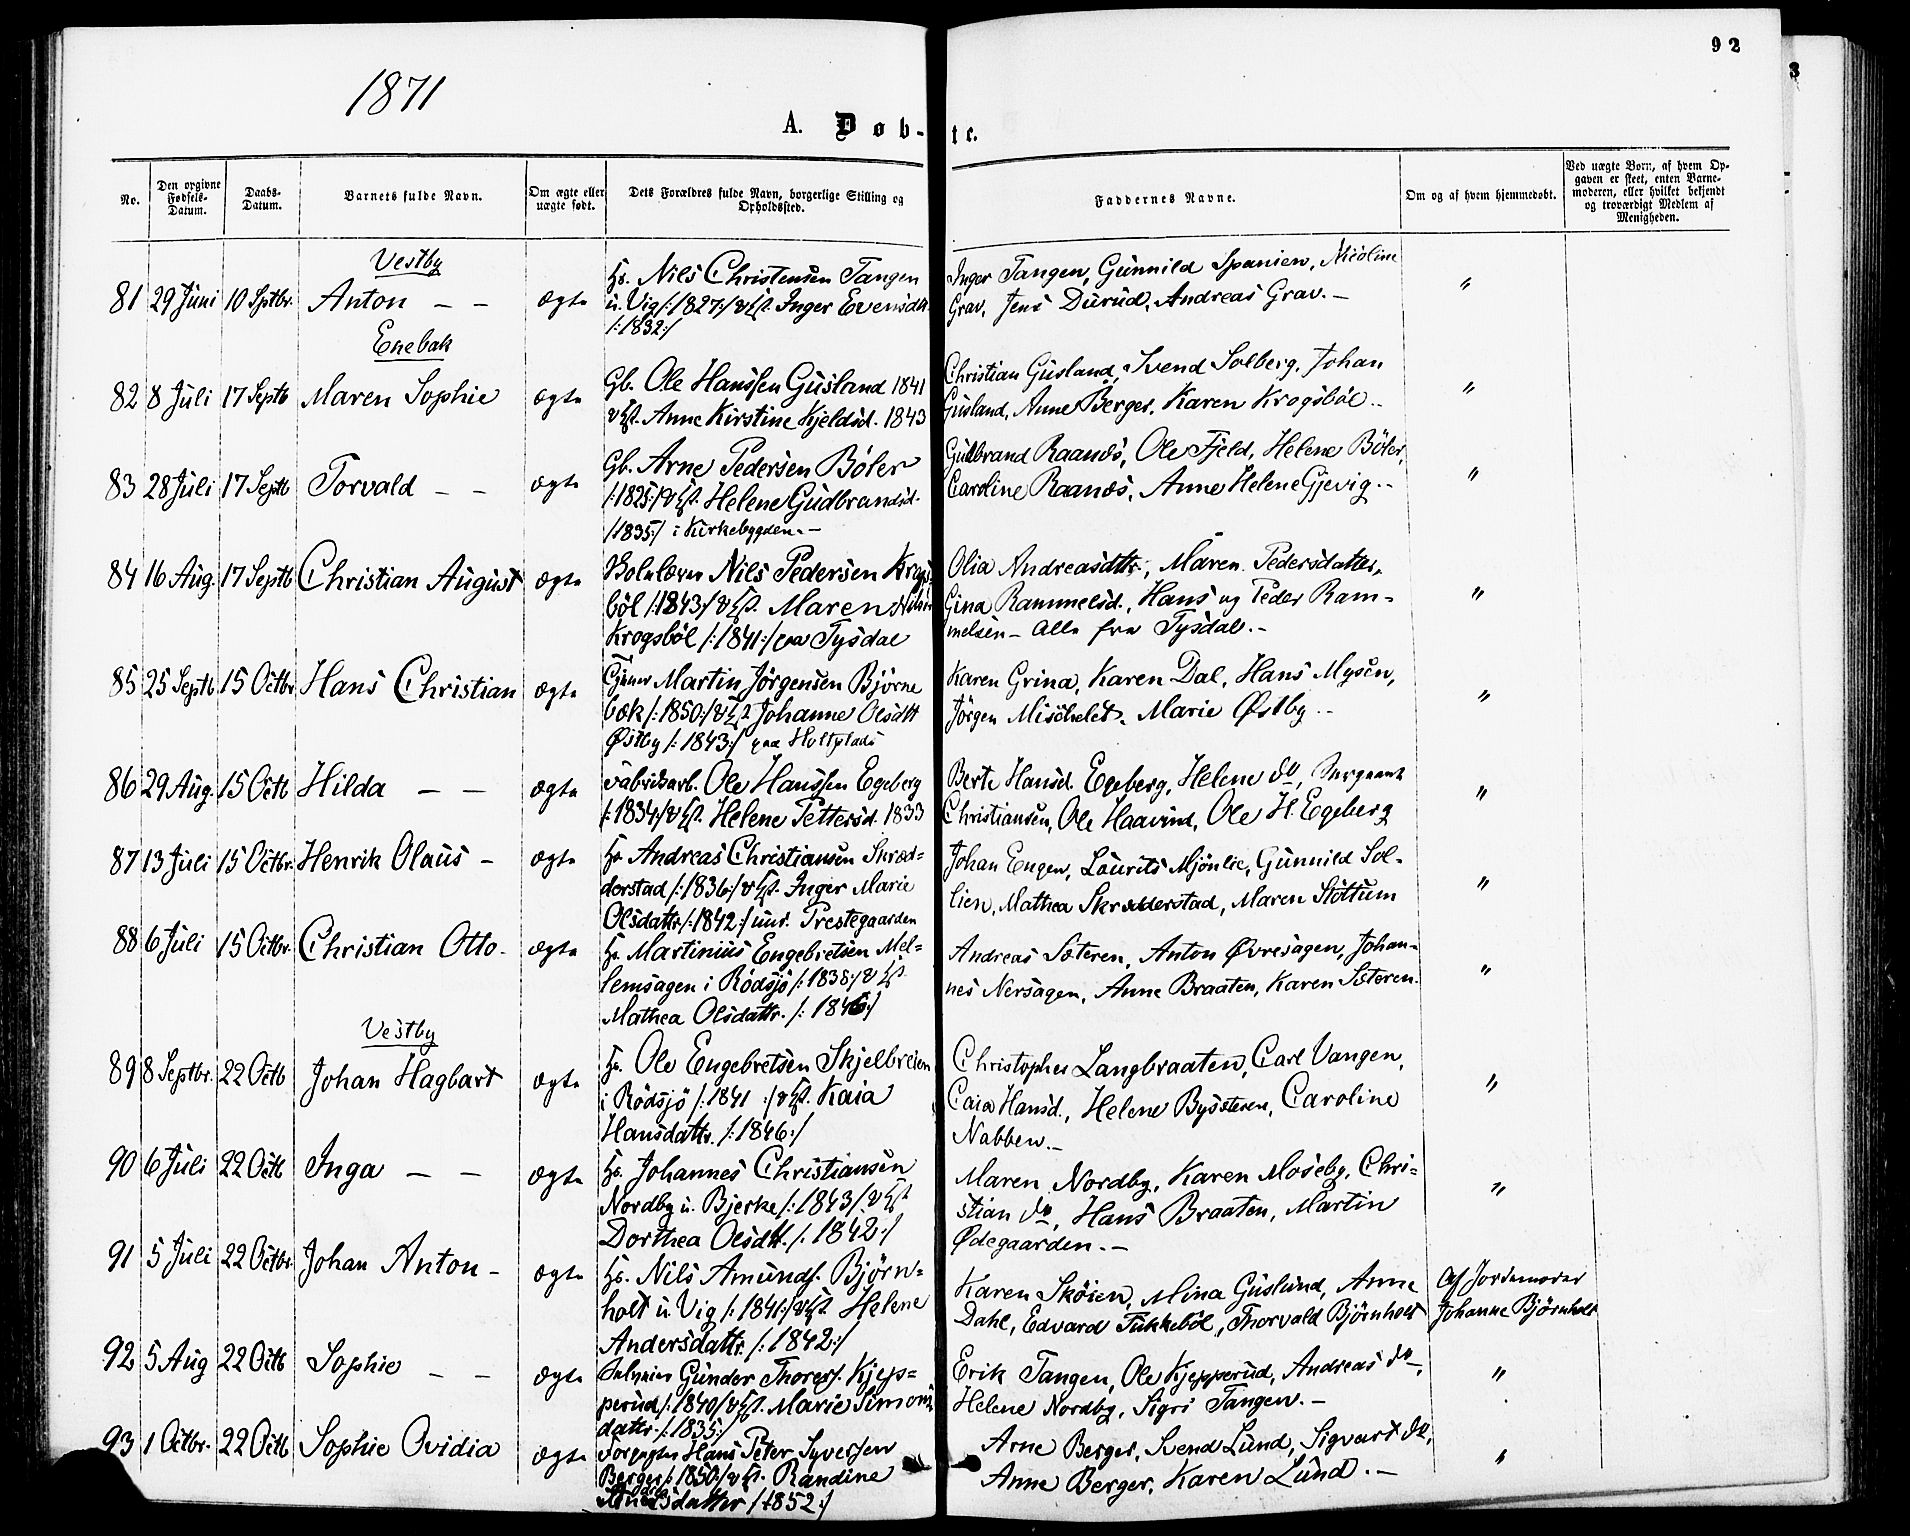 92
3
1871
A. Døb-te.
No.
Den opgivne Fødsels-Datum.
Daabs-Datum.
Barnets fulde Navn.
Om ægte eller uægte født.
Dets Forældres fulde Navn, borgerlige Stilling og Opholdssted.
Faddernes Navne.
Om og af hvem hjemmedøbt.
Ved uægte Born, af hvem Opgaven er skeet, enten Barnemoderen, eller hvilket bekjendt og troværdigt Medlem af Menigheden.
Vestby
81 29 Juni 10 Sptbr. Anton – – ægte
Hs. Nils Christensen Tangen
u. Vig /: 1827 :/ Inger Evensdtt.
/: 1832 :/
Inger Tangen, Gunnild Spanien, Nicoline
Grav, Jens Durud, Andreas Grav. –
"
Enebak
82 8 Juli 17 Septb Maren Sophie ægte
Gb. Ole Hanssen Gusland 1841
Anne Kirstine Kjeldsd. 1843
Christian Gusland, Svend Solberg, Johan
Gusland, Anne Berger, Karen Krogsböl. –
"
83 28 Juli 17 Septb Torvald – – ægte
Gb. Arne Pedersen Böler
/: 1825 :/ Helene Gudbrandsd.
/1835 :/ i Kirkebygden. –
Gudbrand Raanås, Ole Fjeld, Helene Böler,
Caroline Raanås, Anne Helene Gjevig. –
"
84 16 Aug. 17 Septb Christian August ægte
Nils Pedersen Krogs-
böl /: 1843 :/ Maren
Krogsböl /: 1841 :/ paa Tysdal
Olia Andreasdttr., Maren Pedersdatter,
Gina Rammelsd., Hans og Peder Ram-
melsen – alle fra Tysdal. –
"
85 25 Septb 15 Octbr Hans Christian ægte
Martin Jörgensen Björne
bek /: 1850 :/ Johanne Olsdtt
Østby /: 1843 :/ paa Holtplads
Karen Grina, Karen Dal, Hans Mysen,
Jörgen Mischelet, Marie Østby. –
"
86 29 Aug. 15 Octb Hilda – – ægte
Fabrikarb. Ole Hanssen Egeberg
/: 1834 :/ Helene Pettersd. 1833
Berte Hansd. Egeberg, Helene do, Sergeant
Christiansen, Ole Haavind, Ole H. Egeberg
"
87 13 Juli 15 Octbr. Henrik Olaus – ægte
Hs Andreas Christiansen Skræd-
derstad /: 1836 :/ Inger Marie
Olsdattr. /: 1842 :/ und. Prestegaarden
Johan Engen, Laurits Mjönlie, Gunnild Sol-
lien, Mathea Skrædderstad, Maren Stöttum
"
88 6 Juli 15 Octbr. Christian Otto. ægte
Hs Martinius Engebretsen Mel-
lemsagen i Rödsjö /: 1838 :/
Mathea Olsdattr. /: 1846 :/
Andreas Sæteren, Anton Øvresagen, Johan-
nes Nersagen, Anne Braaten, Karen Sæteren.
"
Vestby
89 8 Septbr. 22 Octb Johan Hagbart ægte
Hs. Ole Engebretsen Skjelbreien
i Rödsjö /: 1841 :/ Kaia
Hansdattr. /: 1846 :/
Christopher Langbraaten, Carl Vangen,
Caia Hansd., Helene Bysæteren, Caroline
Nabben. –
"
90 6 Juli 22 Octb Inga – – ægte
Hs. Johannes Christiansen
Nordby u. Bjerke /: 1843 /
Dorthea Olsdtt. /: 1842 :/
Maren Nordby, Karen Moseby, Chri-
stian do, Hans Braaten, Martin
Ødegaarden. –
"
91 5 Juli 22 Octbr Johan Anton – ægte
Hs. Nils Amunds. Björn-
holt u. Vig /: 1841 :/ Helene
Andersdattr. /: 1842 :/
Karen Sköien, Mina Guslund, Anne
Dahl, Edvard Tukkeböl, Thorvald Björnholt
Af Jordemoder
Johanne Björnholt
92 5 Aug 22 Octb Sophie – – ægte
Gunder Thorers. Kjep-
perud /: 1840 / Marie Simons
dattr. /: 1835 :/
Erik Tangen, Ole Kjepperud, Andreas do,
Helene Nordby, Sigri Tangen. –
"
93 1 Octbr. 22 Octb Sophie Ovidia ægte
Forpagter Hans Peter Syversen
Berger /: 1850 :/ Randine
datter /: 1852 :/
Arne Berger, Svend Lund, Sigvart do,
Anne Berger, Karen Lund. –
"